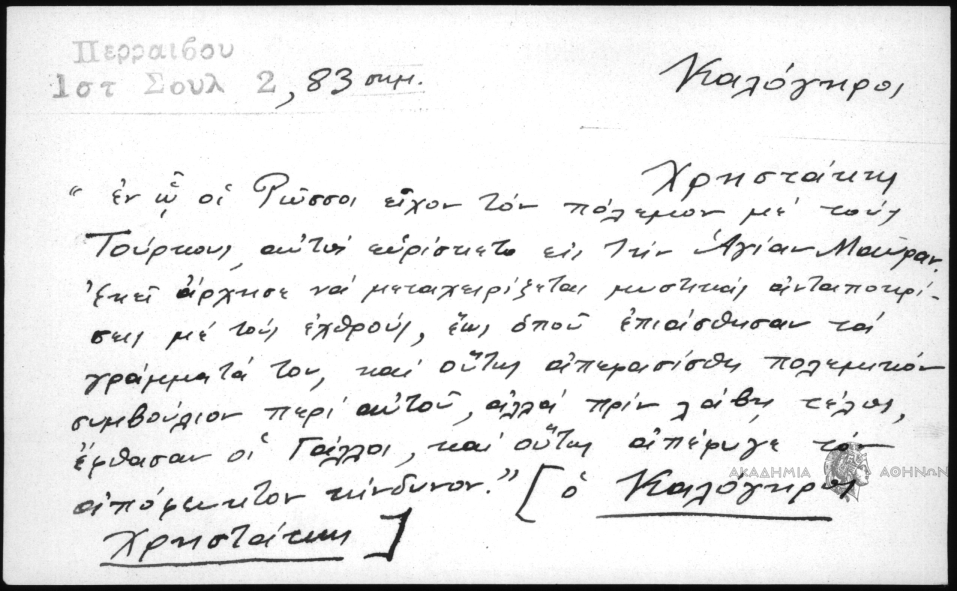 Περραιβου
1στ Σουλ 2, 83 σημ.
Καλόγηροι
Χρηστάκης
"ἐν ᾧ οἱ Ρῶσσοι εἶχον τόν πόλεμον μέ τούς
Τούρκους, αὐτός εὑρίσκετο εἰς τήν Ἁγίαν Μαύραν.
Ἐκεῖ ἄρχησε νά μεταχειρίζεται μυστικάς ἀνταποκρί-
σεις μέ τούς ἐχθρούς, ἕως ὁποῦ ἐπιάσθησαν τά
γράμματά του, καί οὕτως ἀπεφασίσθη πολεμικόν
συμβούλιον περί αὐτοῦ, ἀλλά πρίν λάβη τέλος,
ἔφθασαν οἱ Γάλλοι, καί οὕτως ἀπέφυγε τόν
ἀπόφευκτον κίνδυνον." [ὁ Καλόγηρος
Χρηστάκης]
ΑΚΑΔΗΜΙΑ ΑΘΗΝΩΝ